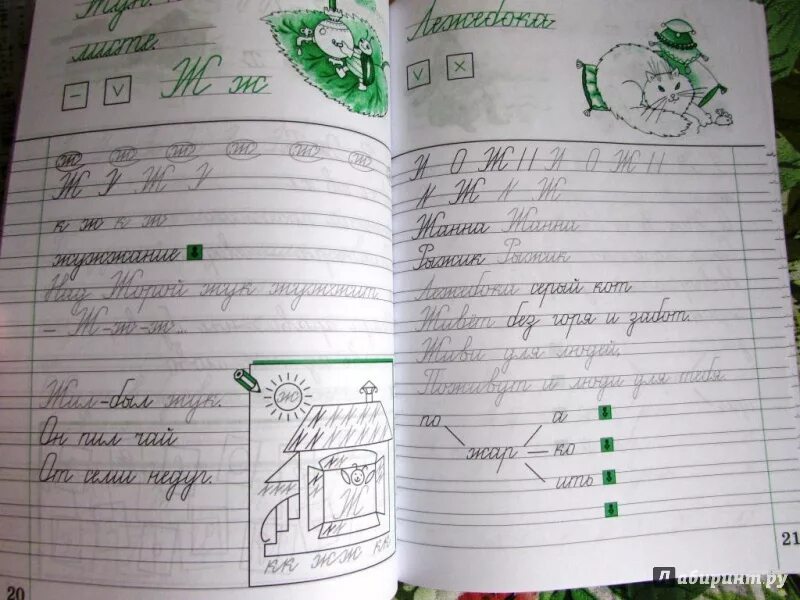 Жук.
листе.
Ж ж
жо жо жо жо жо жо
Ж У Ж У
к ж к ж
жужжание
Над Жорой жук жужжит.
– Ж-ж-ж...
Жил-был жук.
Он пил чай
От семи недуг.
жо
Ж
кк жж кк
20
Лежебока
И О Ж И О Ж
N Ж N Ж
Жанна Жанна
Рыжик Рыжик
Лежебока серый кот
Живёт без горя и забот.
Живи для людей,
Поживут и люди для тебя.
по
жар
а
ко
ить
21
Лабиринт.ру